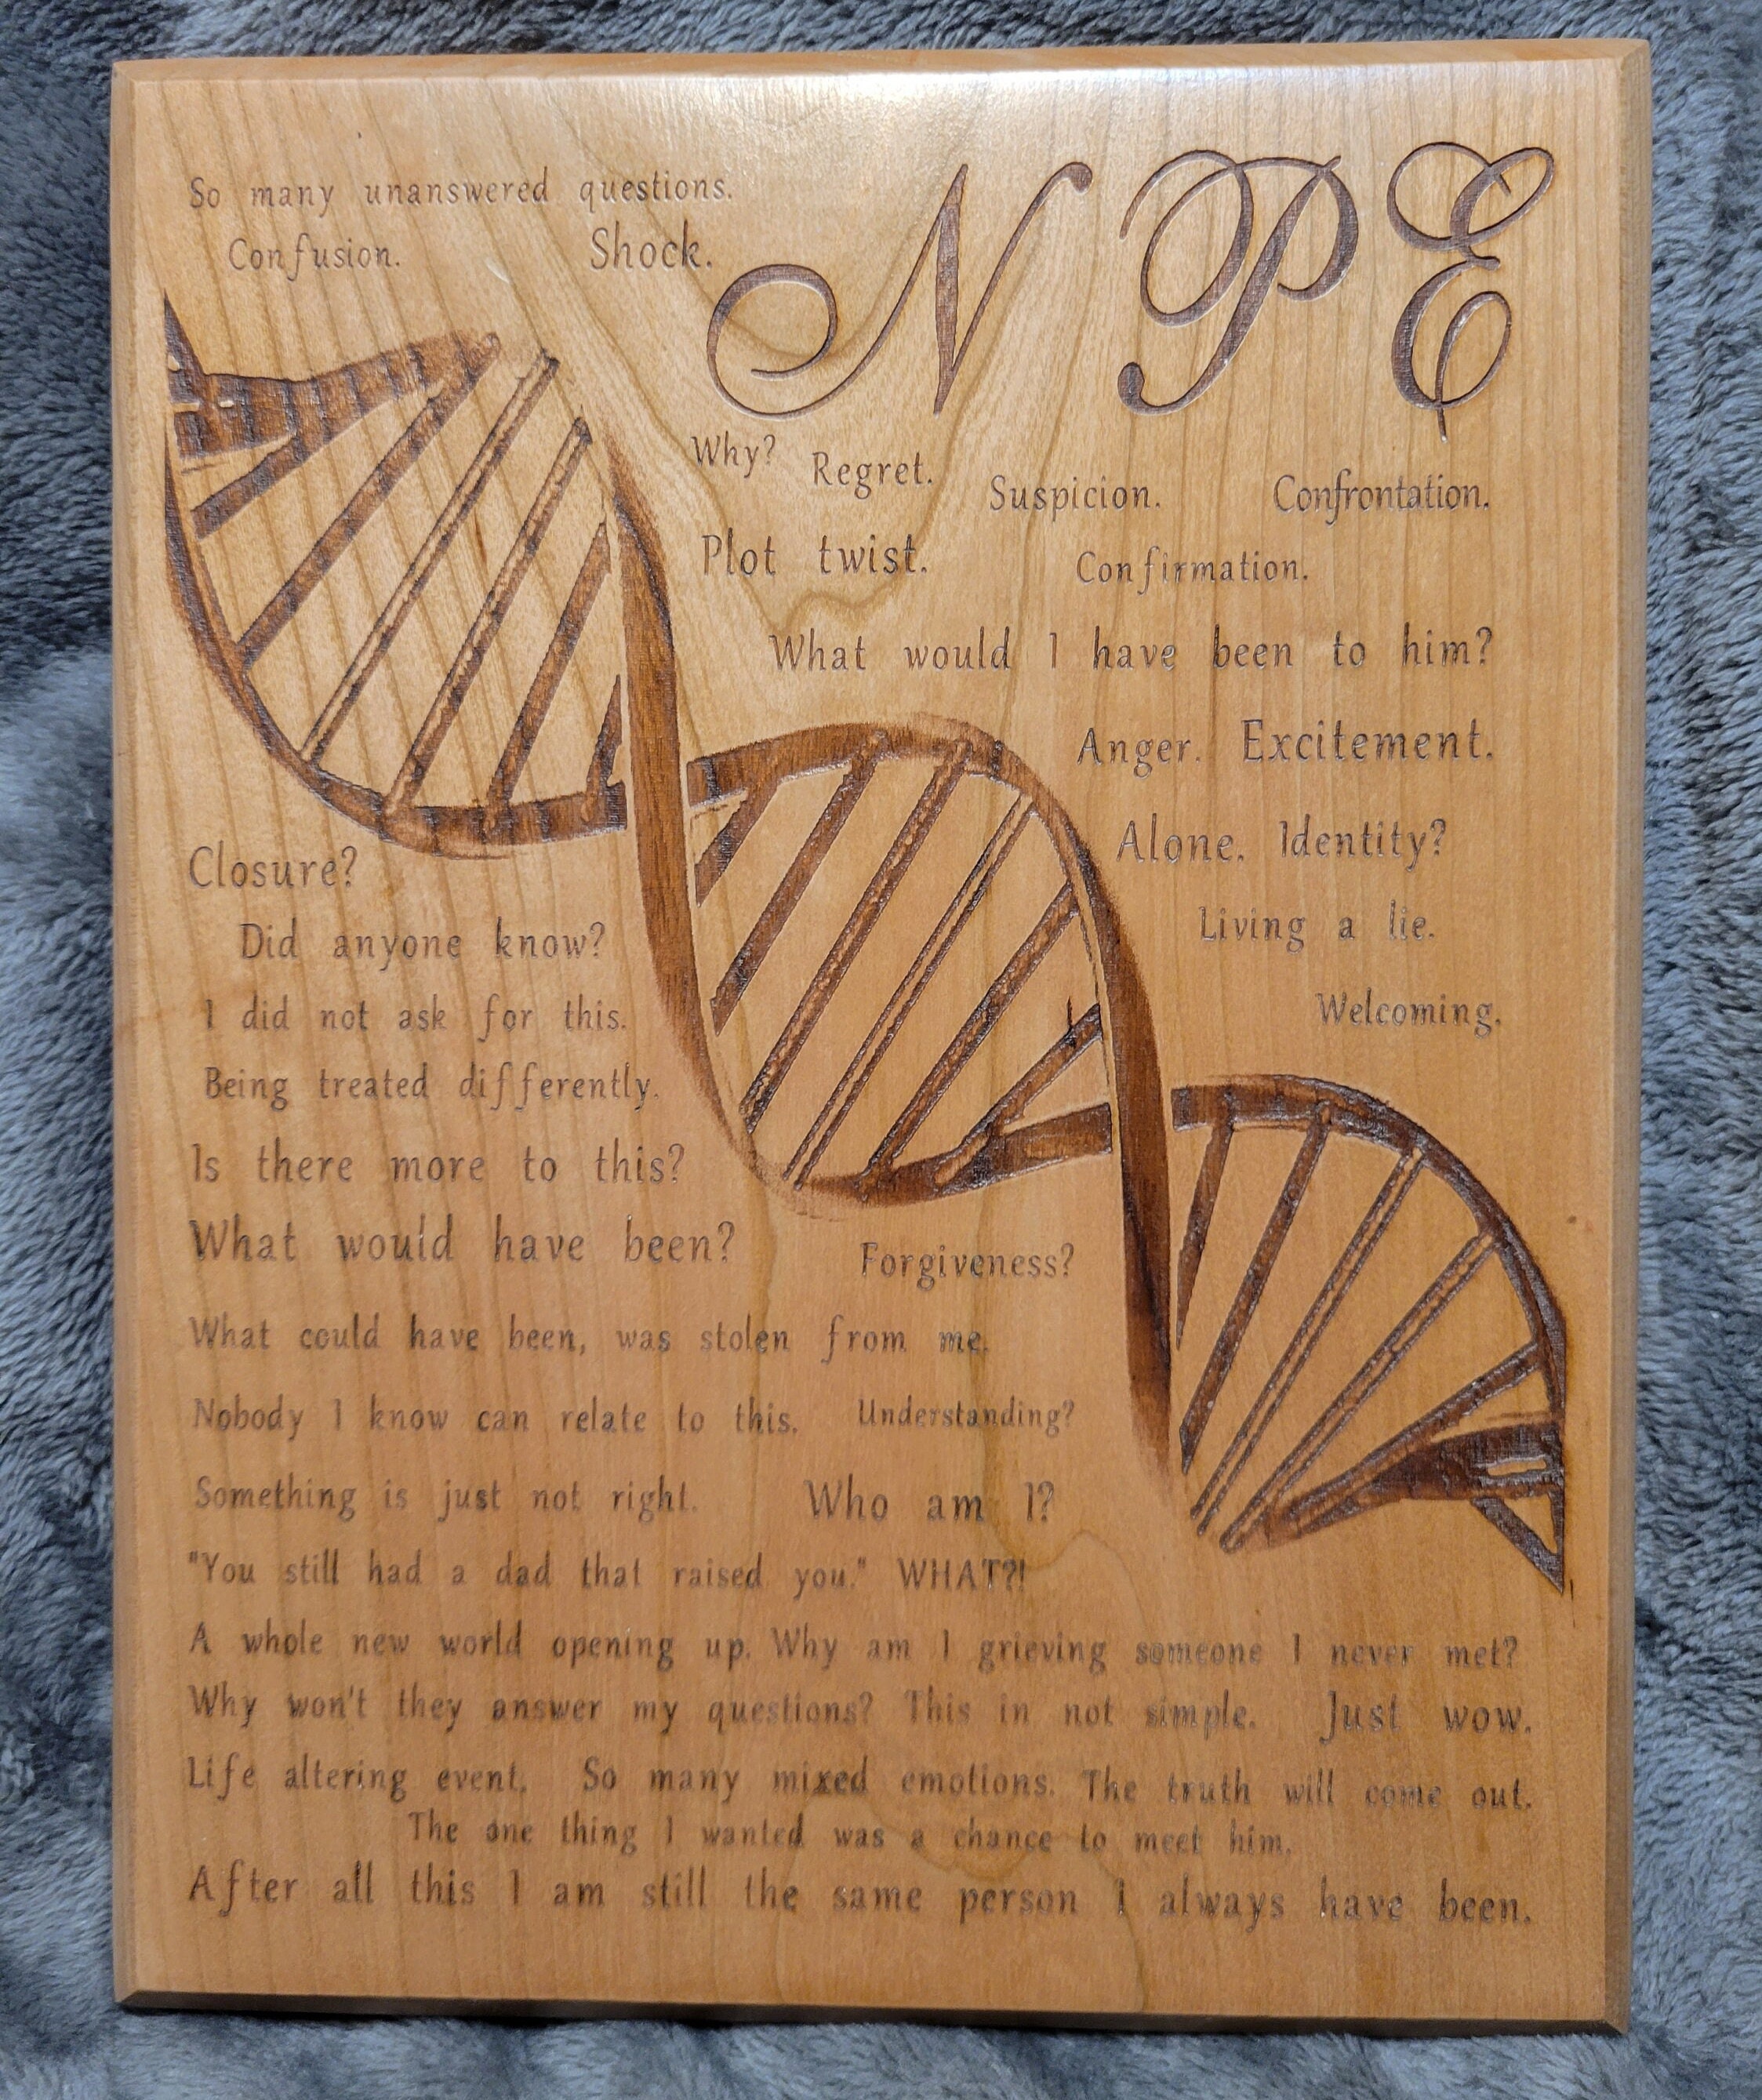 So many unanswered questions.
Confusion. Shock.
NPE
Why? Regret. Suspicion. Confrontation.
Plot twist. Confirmation.
What would I have been to him?
Anger. Excitement.
Alone. Identity?
Living a lie.
Welcoming.
Closure?
Did anyone know?
I did not ask for this.
Being treated differently.
Is there more to this?
What would have been? Forgiveness?
What could have been, was stolen from me.
Nobody I know can relate to this. Understanding?
Something is just not right. Who am I?
"You still had a dad that raised you." WHAT?!
A whole new world opening up. Why am I grieving someone I never met?
Why won't they answer my questions? This in not simple. Just wow.
Life altering event. So many mixed emotions. The truth will come out.
The one thing I wanted was a chance to meet him.
After all this I am still the same person I always have been.